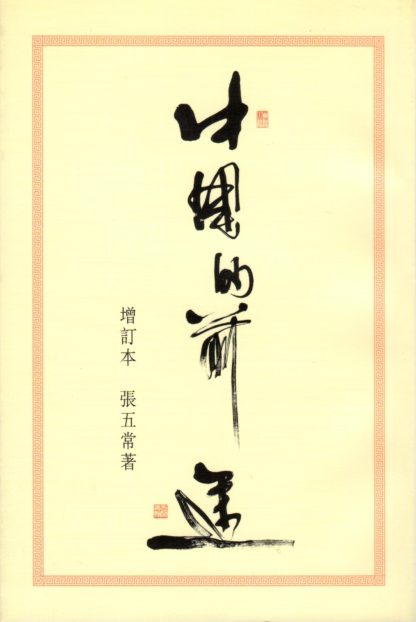 中國的前途
增訂本 張五常著